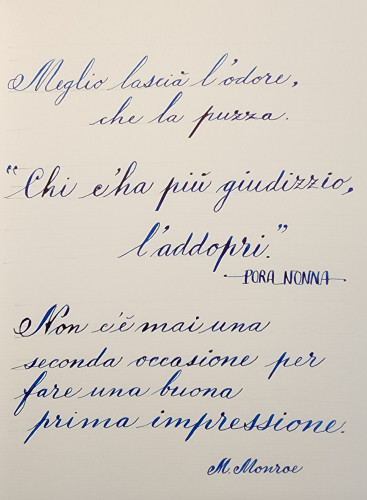 Meglio lascià l'odore,
che la puzza.
"Chi c'ha più giudizzio,
l'addopri."
PORA NONNA
Non c'è mai una
seconda occasione per
fare una buona
prima impressione.
M. Monroe